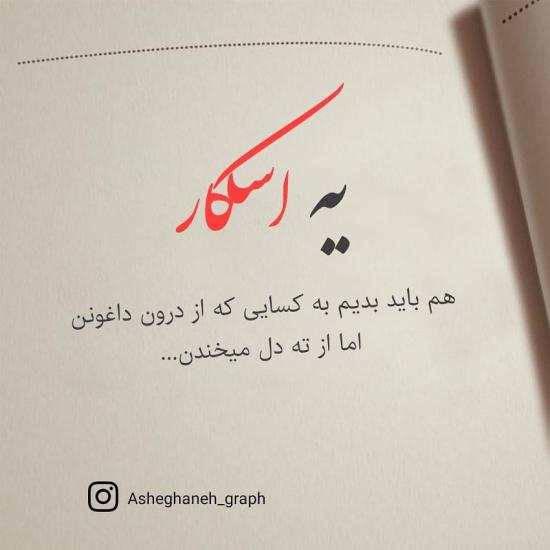 یه اسکار
هم باید بدیم به کسایی که از درون داغونن
اما از ته دل میخندن...
Asheghaneh_graph